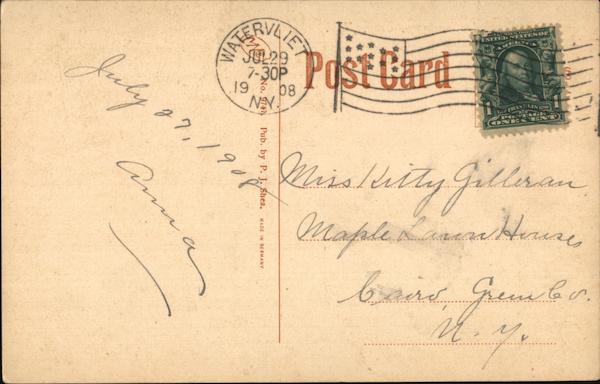 WATERVLIET
JUL 29
7-30P
19 08
N.Y.
Post Card
UNITED STATES OF AMERICA
1 FRANKLIN 1
POSTAGE
ONE CENT
July 27, 1908
Anna
Pub. by P. J. Shea.
MADE IN GERMANY
Miss Kitty Gilleran
Maple Lawn House,
Cairo, Green Co.
N.Y.